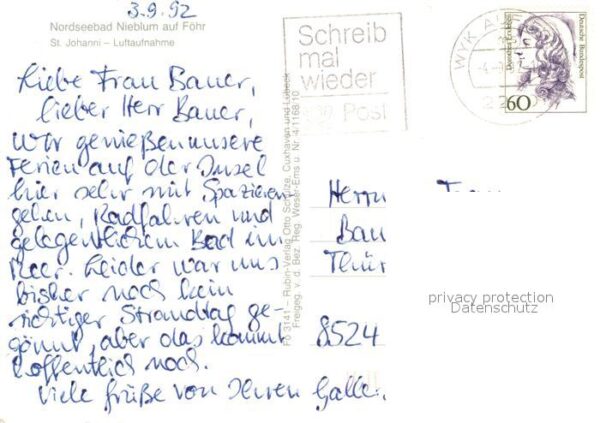 3.9.92
Nordseebad Nieblum auf Föhr
St. Johanni – Luftaufnahme
Liebe Frau Bauer,
lieber Herr Bauer,
wir genießen unsere
Ferien auf der Insel
hier sehr mit Spazieren
gehen, Radfahren und
gelegentlichem Bad im
Meer. Leider war uns
bisher noch kein
richtiger Strandtag ge-
gönnt, aber das kommt
hoffentlich noch.
Viele Grüße von Ihren Galler.
Fö 3141 – Rubin-Verlag Otto Schütze, Cuxhaven und Lübeck
Freigeg. v. d. Bez. Reg. Weser-Ems u. Nr. 4/1168/10
Schreib
mal
wieder
Post
WYK AUF
Deutsche Bundespost
60
Herrn
Bau
Thür
8524
privacy protection
Datenschutz